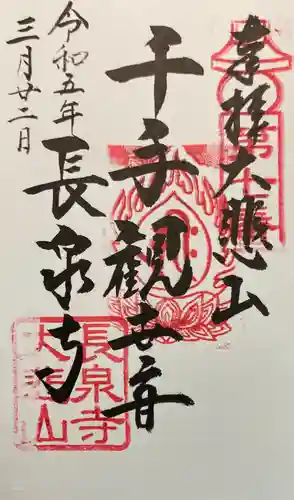 奉拝 大悲山
千手観世音
長泉寺
令和五年
三月廿二日
長泉寺
大悲山